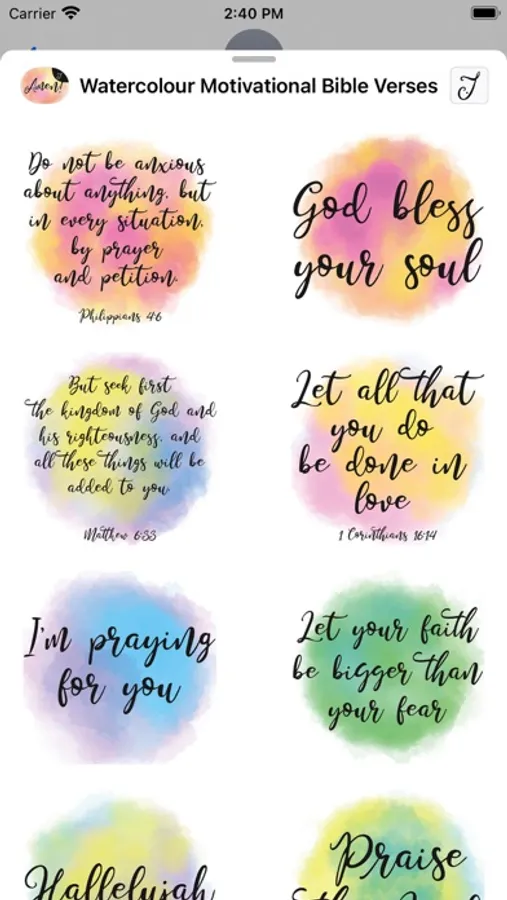 Carrier 2:40 PM
Amen! Watercolour Motivational Bible Verses J
Do not be anxious
about anything, but
in every situation,
by prayer
and petition.
Philippians 4:6
God bless
your soul
But seek first
the kingdom of God and
his righteousness, and
all these things will be
added to you
Matthew 6:33
Let all that
you do
be done in
love
1 Corinthians 16:14
I'm praying
for you
Let your faith
be bigger than
your fear
Hallelujah
Praise